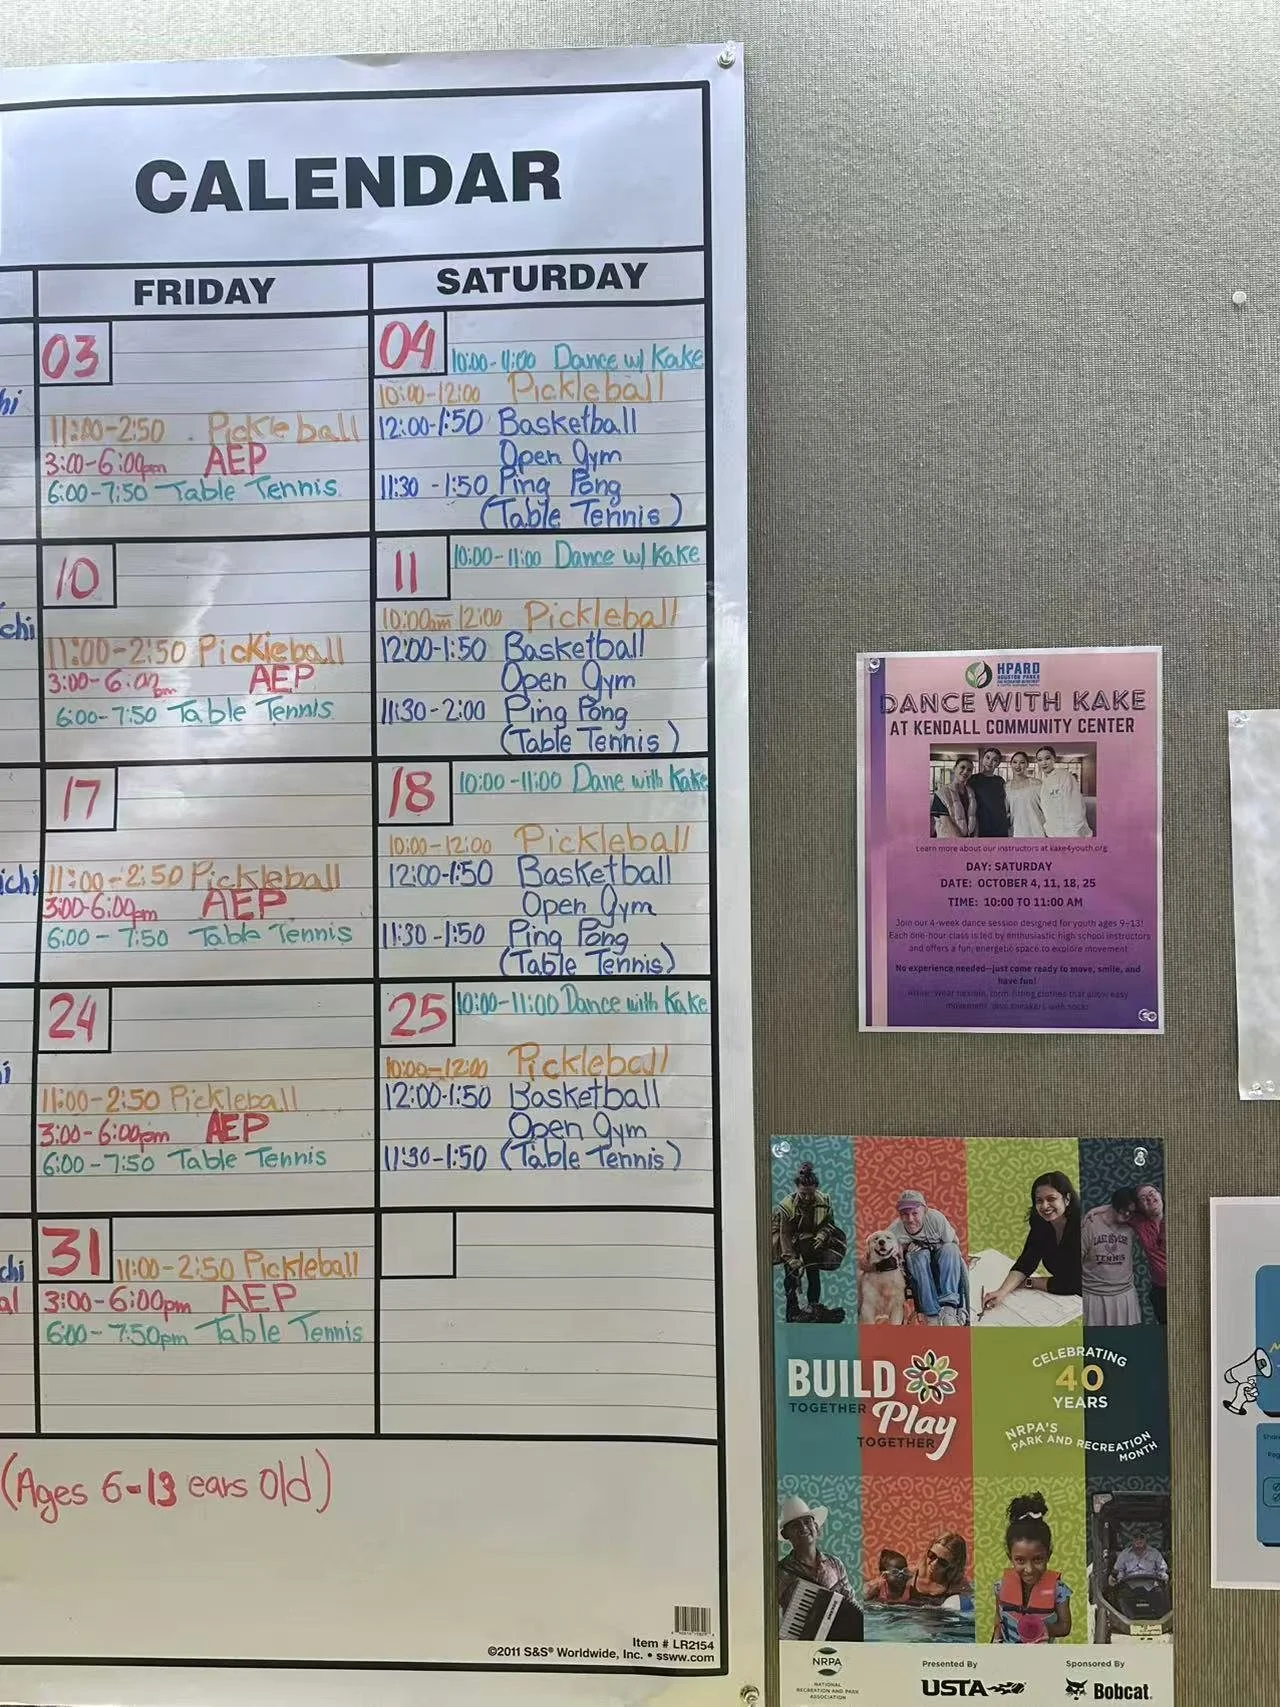 CALENDAR
FRIDAY
SATURDAY
hi
03
11:00-2:50 Pickleball
3:00-6:00pm AEP
6:00-7:50 Table Tennis
04
10:00-11:00 Dance w/ Kake
10:00-12:00 Pickleball
12:00-1:50 Basketball
Open Gym
11:30-1:50 Ping Pong
(Table Tennis)
chi
10
11:00-2:50 Pickleball
3:00-6:00pm AEP
6:00-7:50 Table Tennis
11
10:00-11:00 Dance w/ Kake
10:00am-12:00 Pickleball
12:00-1:50 Basketball
Open Gym
11:30-2:00 Ping Pong
(Table Tennis)
ichi
17
11:00-2:50 Pickleball
3:00-6:00pm AEP
6:00-7:50 Table Tennis
18
10:00-11:00 Dane with Kake
10:00-12:00 Pickleball
12:00-1:50 Basketball
Open Gym
11:30-1:50 Ping Pong
(Table Tennis)
i
24
11:00-2:50 Pickleball
3:00-6:00pm AEP
6:00-7:50 Table Tennis
25
10:00-11:00 Dance with Kake
10:00-12:00 Pickleball
12:00-1:50 Basketball
Open Gym
11:30-1:50 (Table Tennis)
chi
al
31
11:00-2:50 Pickleball
3:00-6:00pm AEP
6:00-7:50pm Table Tennis
(Ages 6-13 ears Old)
Item # LR2154
©2011 S&S® Worldwide, Inc. • ssww.com
HPARD
HOUSTON PARKS
DANCE WITH KAKE
AT KENDALL COMMUNITY CENTER
Learn more about our instructors at kake4youth.org
DAY: SATURDAY
DATE: OCTOBER 4, 11, 18, 25
TIME: 10:00 TO 11:00 AM
Join our 4-week dance session designed for youth ages 9-13!
Each one-hour class is led by enthusiastic high school instructors
and offers a fun, energetic space to explore movement.
No experience needed—just come ready to move, smile, and
have fun!
Attire: Wear flexible, form-fitting clothes that allow easy
movement, plus sneakers with socks!
TENNIS
BUILD
TOGETHER
Play
TOGETHER
CELEBRATING
40
YEARS
NRPA'S
PARK AND RECREATION
MONTH
NRPA
NATIONAL
RECREATION AND PARK
ASSOCIATION
Presented By
USTA
Sponsored By
Bobcat.